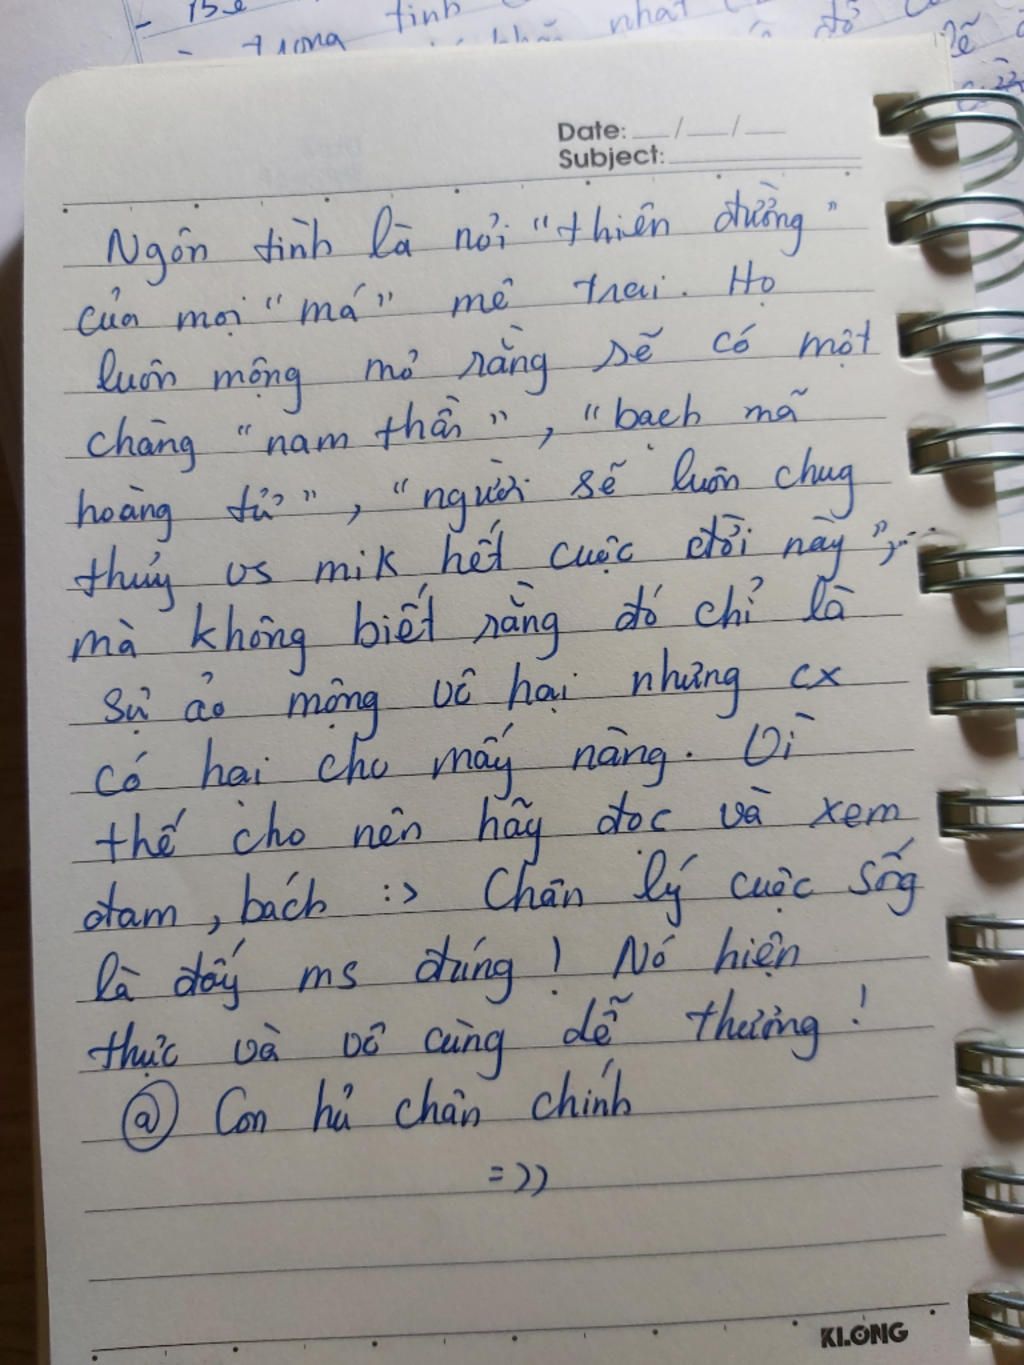 tinh
trong nhất đồ
Date: __/__/__
Subject:
Ngôn tình là nơi "thiên đường"
của mọi "má" mê trai. Họ
luôn mộng mơ rằng sẽ có một
chàng "nam thần", "bạch mã
hoàng tử", "người sẽ luôn chug
thủy vs mik hết cuộc đời này",...
mà không biết rằng đó chỉ là
sự ảo mộng vô hại nhưng cx
có hại cho mấy nàng. Vì
thế cho nên hãy đọc và xem
đam, bách :> Chân lý cuộc sống
là đấy ms đúng! Nó hiện
thực và vô cùng dễ thương!
@ Con hủ chân chính
=))
KLONG